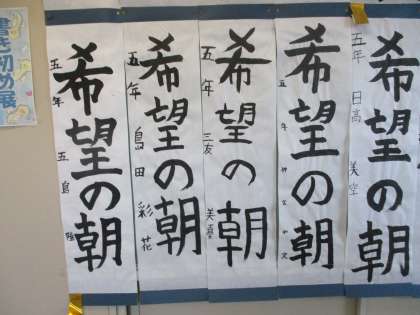 書き初め展
希望の朝
五年 日高 美空
希望の朝
五年
希望の朝
五年 三友 美
希望の朝
五年 島田 彩花
希望の朝
五年 五島